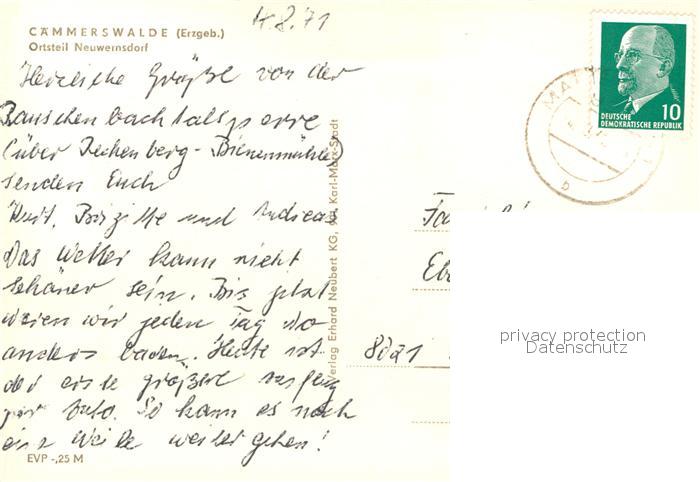 4.8.71
CÄMMERSWALDE (Erzgeb.)
Ortsteil Neuwernsdorf
Herzliche Grüße von der
Rauschenbachtalsperre
(über Rechenberg-Bienenmühle)
senden Euch
Brigitte und Andreas
Das Wetter kann nicht
schöner sein. Bis jetzt
waren wir jeden Tag wo
anders baden. Heute ist
der erste größere
per Auto. So kann es noch
eine Weile weitergehen!
EVP -,25 M
Verlag Erhard Neubert KG, Karl-Marx-Stadt
8021
10
DEUTSCHE
DEMOKRATISCHE REPUBLIK
privacy protection
Datenschutz